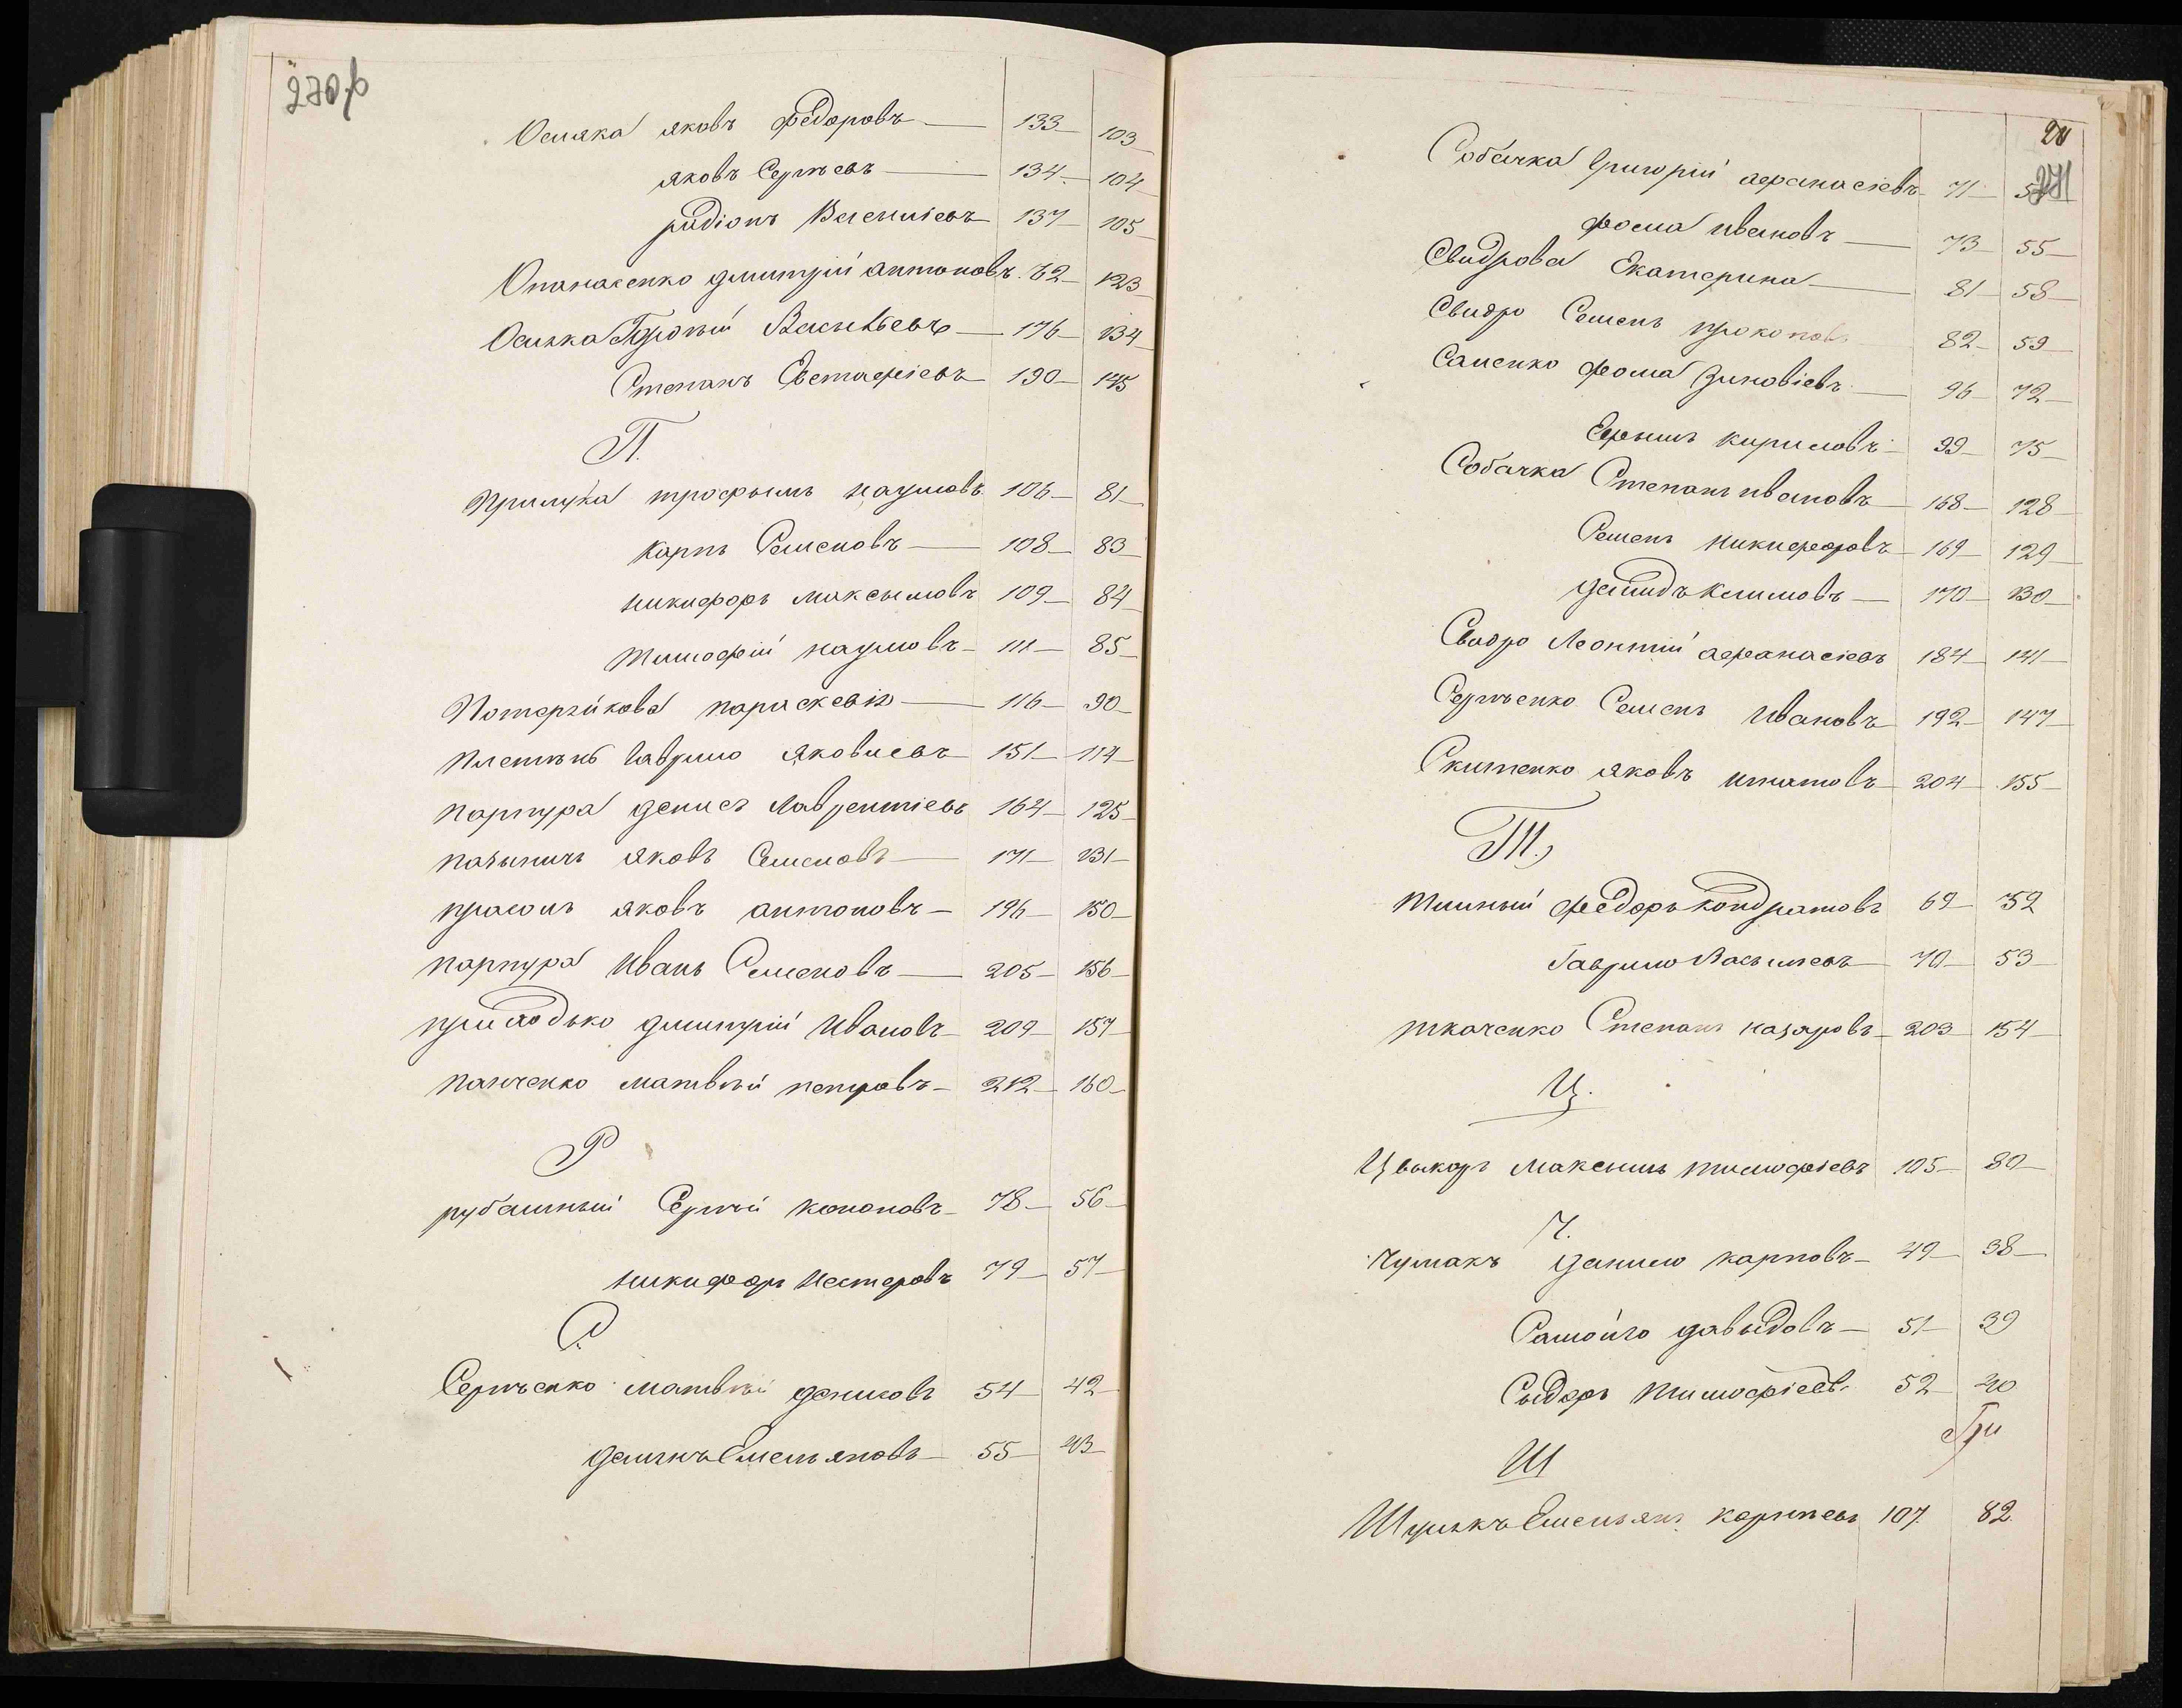 270 б
Осмака яковъ федоровъ — 133 — 103
яковъ Сергѣевъ — 134 — 104
радіонъ Василіевъ 137 — 105
Опанасенко дмитрій антоновъ 62 — 123
Осмака Василіевъ — 176 — 134
Степанъ Евстафіевъ 190 — 145
П.
Прилука трофымъ наумовъ 106 — 81
Карпъ Семеновъ — 108 — 83
никифоръ максымовъ 109 — 84
тимофій наумовъ — 111 — 85
параскевія — 116 — 90
Плетѣнь Гаврило яковлевъ 151 — 114
парпура денисъ Лаврентіевъ 164 — 125
яковъ Семеновъ — 171 — 131
прасолъ яковъ антоновъ — 196 — 150
парпура Иванъ Семеновъ — 205 — 156
приходько дмитрій Ивановъ — 209 — 157
панченко матвѣй петровъ — 212 — 160
Р
рубашный Сергѣй кононовъ — 78 — 56
никифоръ нестеровъ 79 — 57
С.
Сергѣенко матвѣй 54 42
Емельяновъ — 55 — 43
271
Собачка Григорій афанасіевъ 71 —
фома ивановъ — 73 — 55
Свидрова Екатерина — 81 — 58
Свидро Семенъ прокоповъ 82 — 59
Саменко фома Зиновіевъ — 96 — 72
Ефымъ кириловъ — 99 — 75
Собачка Степанъ ивановъ — 168 — 128
Семенъ никифоровъ — 169 — 129
климовъ — 170 — 130
Свидро Леонтій афанасіевъ 184 — 141
Сергѣенко Семенъ Ивановъ 192 — 147
Скитенко яковъ игнатовъ 204 — 155
Т.
Тимный федоръ кондратовъ 69 — 52
Гаврило Васылевъ — 70 — 53
ткаченко Степанъ назаровъ — 203 — 154
Ц.
Цвыкаръ Максымъ тимофіевъ 105 — 80
Ч.
Чумакъ данило карповъ — 49 — 38
Самойло давыдовъ — 51 — 39
Сыдоръ тимофіевъ 52 — 40
Ш
Шулякъ Емельянъ 107 82